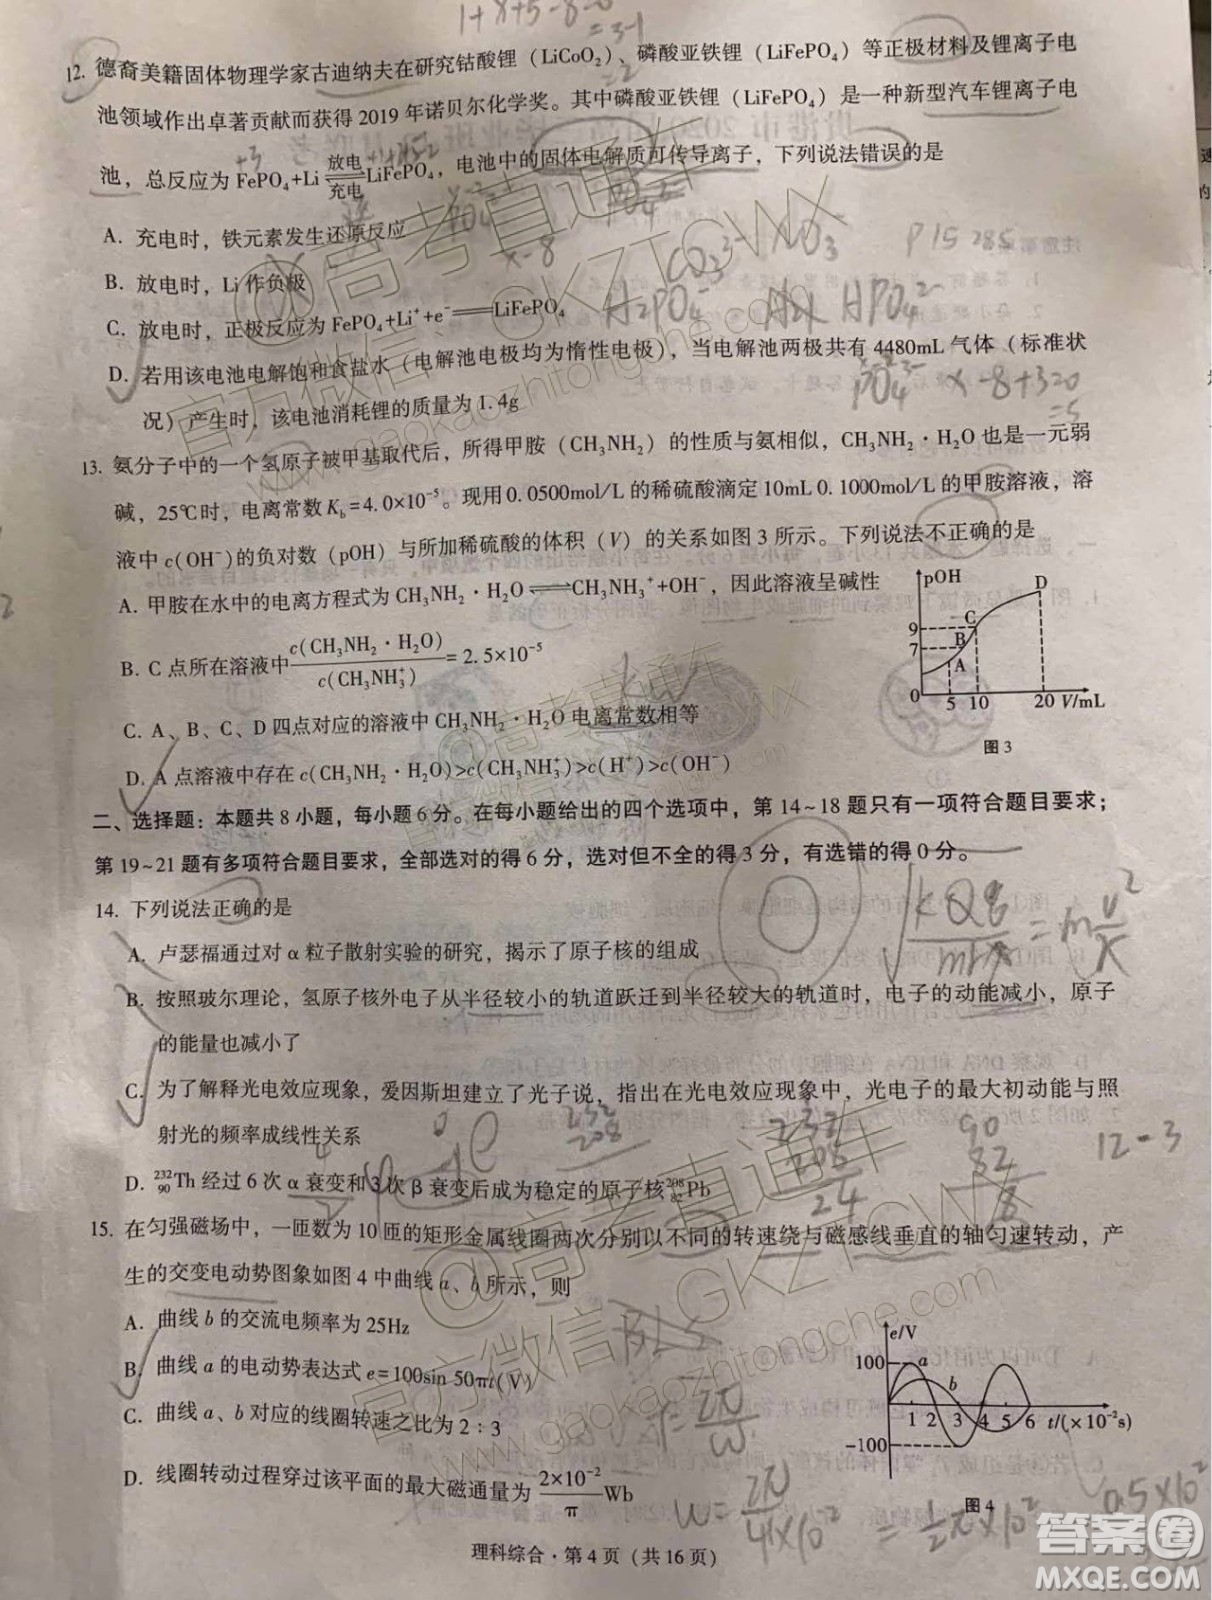 1+x+5-8=0
=3-1
12. 德裔美籍固体物理学家古迪纳夫在研究钴酸锂（LiCoO₂）、磷酸亚铁锂（LiFePO₄）等正极材料及锂离子电
池领域作出卓著贡献而获得 2019 年诺贝尔化学奖。其中磷酸亚铁锂（LiFePO₄）是一种新型汽车锂离子电
池，总反应为 FePO₄+Li ⇌(放电/充电) LiFePO₄，电池中的固体电解质可传导离子，下列说法错误的是
A. 充电时，铁元素发生还原反应
B. 放电时，Li 作负极
C. 放电时，正极反应为 FePO₄+Li⁺+e⁻══LiFePO₄
D. 若用该电池电解饱和食盐水（电解池电极均为惰性电极），当电解池两极共有 4480mL 气体（标准状
况）产生时，该电池消耗锂的质量为 1.4g
x-8
CO₃²⁻ NO₃
P15 285
H₂PO₄⁻ HPO₄²⁻
PO₄³⁻ x-8+3=0
=5
13. 氨分子中的一个氢原子被甲基取代后，所得甲胺（CH₃NH₂）的性质与氨相似，CH₃NH₂·H₂O 也是一元弱
碱，25℃时，电离常数 K_b=4.0×10⁻⁵。现用 0.0500mol/L 的稀硫酸滴定 10mL 0.1000mol/L 的甲胺溶液，溶
液中 c(OH⁻)的负对数（pOH）与所加稀硫酸的体积（V）的关系如图 3 所示。下列说法不正确的是
A. 甲胺在水中的电离方程式为 CH₃NH₂·H₂O⇌CH₃NH₃⁺+OH⁻，因此溶液呈碱性
B. C 点所在溶液中 c(CH₃NH₂·H₂O)/c(CH₃NH₃⁺)=2.5×10⁻⁵
C. A、B、C、D 四点对应的溶液中 CH₃NH₂·H₂O 电离常数相等
D. A 点溶液中存在 c(CH₃NH₂·H₂O)>c(CH₃NH₃⁺)>c(H⁺)>c(OH⁻)
pOH
D
C
9
B
7
A
0 5 10 20 V/mL
图 3
kw
二、选择题：本题共 8 小题，每小题 6 分。在每小题给出的四个选项中，第 14~18 题只有一项符合题目要求；
第 19~21 题有多项符合题目要求，全部选对的得 6 分，选对但不全的得 3 分，有选错的得 0 分。
14. 下列说法正确的是
A. 卢瑟福通过对 α 粒子散射实验的研究，揭示了原子核的组成
B. 按照玻尔理论，氢原子核外电子从半径较小的轨道跃迁到半径较大的轨道时，电子的动能减小，原子
的能量也减小了
C. 为了解释光电效应现象，爱因斯坦建立了光子说，指出在光电效应现象中，光电子的最大初动能与照
射光的频率成线性关系
D. ²³²₉₀Th 经过 6 次 α 衰变和 3 次 β 衰变后成为稳定的原子核²⁰⁸₈₂Pb
232
208
232
208
24
90
82
8
12-3
15. 在匀强磁场中，一匝数为 10 匝的矩形金属线圈两次分别以不同的转速绕与磁感线垂直的轴匀速转动，产
生的交变电动势图象如图 4 中曲线 a、b 所示，则
A. 曲线 b 的交流电频率为 25Hz
B. 曲线 a 的电动势表达式 e=100sin 50πt(V)
C. 曲线 a、b 对应的线圈转速之比为 2：3
D. 线圈转动过程穿过该平面的最大磁通量为 2×10⁻²/π Wb
e/V
100 a
b
1 2 3 4 5 6 t/(×10⁻²s)
-100
图 4
理科综合·第 4 页（共 16 页）
@高考直通车
官方微信：GKZTCWX
www.gaokaozhitongche.com
@高考直通车
官方微信：GKZTCWX
www.gaokaozhitongche.com
答案圈
MXQE.COM